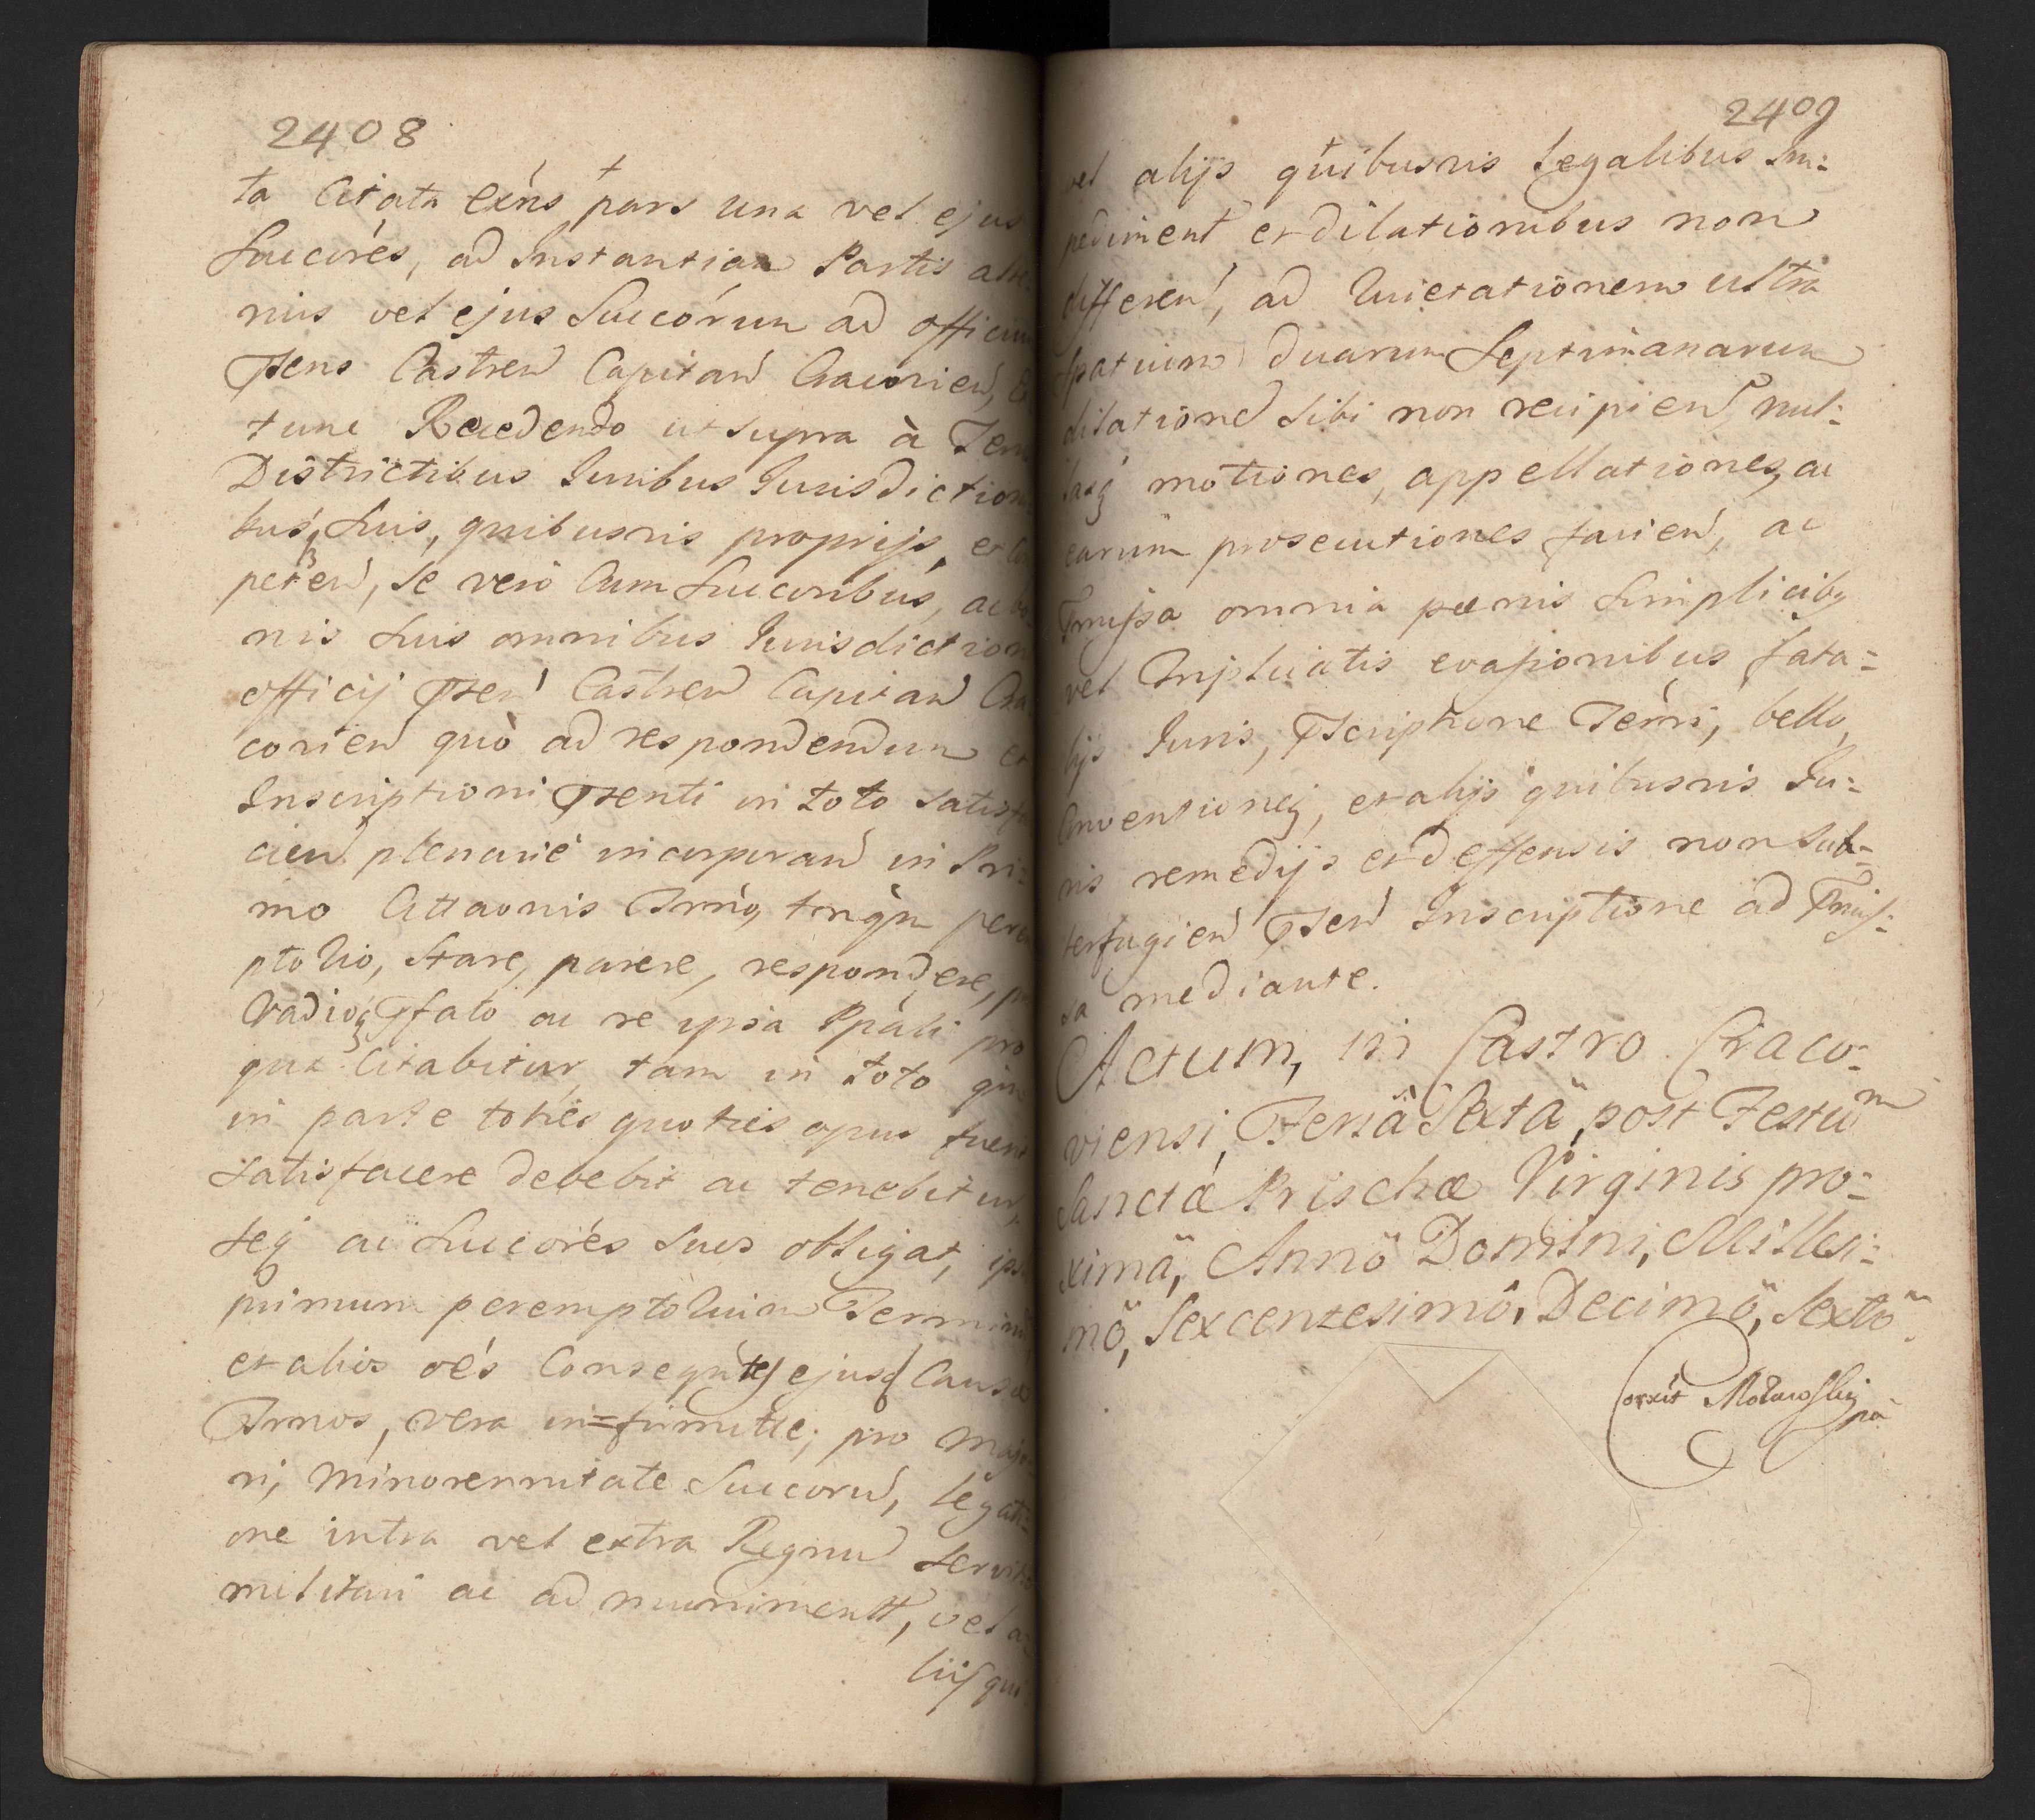 2408
ta Citata exńs pars una vel ejus
Succóres, ad Instantiam Partis alte:
rius vel ejus Succórum ad officium
Psens Castren Capitan Cracovien,
tunc Recedendo ut supra à
Districtibus Juribus Jurisdictioni
busq, suis, quibusvis proprijs, et
peten, se vero Cum Succoribus, ac bo
nis suis omnibus Jurisdictioni
officij Psen Castren Capitan Cra
covien quò ad respondendum et
Inscriptioni Psenti in toto satisfa
cien plenarié incorporan in Pri:
mo Cittaonis Trmo, tnqm perem
ptorio, Stare, parere, respondere,
Vadioq Pfato ac re ipsa Ppali pro
qua Citabitur, tam in toto qm
in parte toties quoties opus fuerit
satisfacere debebit ac tenebitur,
seq ac Succorés suos obligat,
primum peremptorium Terminu
et alios oés Conseqútes ejusd Causæ
Trmos, vera in=firmitte, pro Majo:
ri, Minorennitate Succoru, legati:
one intra vel extra Regnu servitio
militari ac ad munimentt, vel a:
lijs qui
2409
vel alijs quibusvis legalibus Im:
pediment et dilationibus non
differen, ad Quietationem ultra
Spatium duarum Septimanarum
dilatione Sibi non recipien, nul:
lasq motiones, appellationes, ac
earum prosecutiones facien, ac
Pmissa omnia pænis Simplicibq
vel Triplicatis evasionibus fata=
lijs Juris, Pscriptione Terri, bello,
Conventioneq, et alijs quibusvis Ju:
ris remedijs et deffensis non sub=
terfugien Psen Inscriptione ad Pmis:
sa mediante.
Actum, in Castro Craco:
viensi, Feriâ Sexta, post Festum
Sanctæ Prischæ Virginis pro=
ximä, Annö Domini, Millesi:
mö, Sexcentesimô, Decimö, Sextö.
Corxit
pa